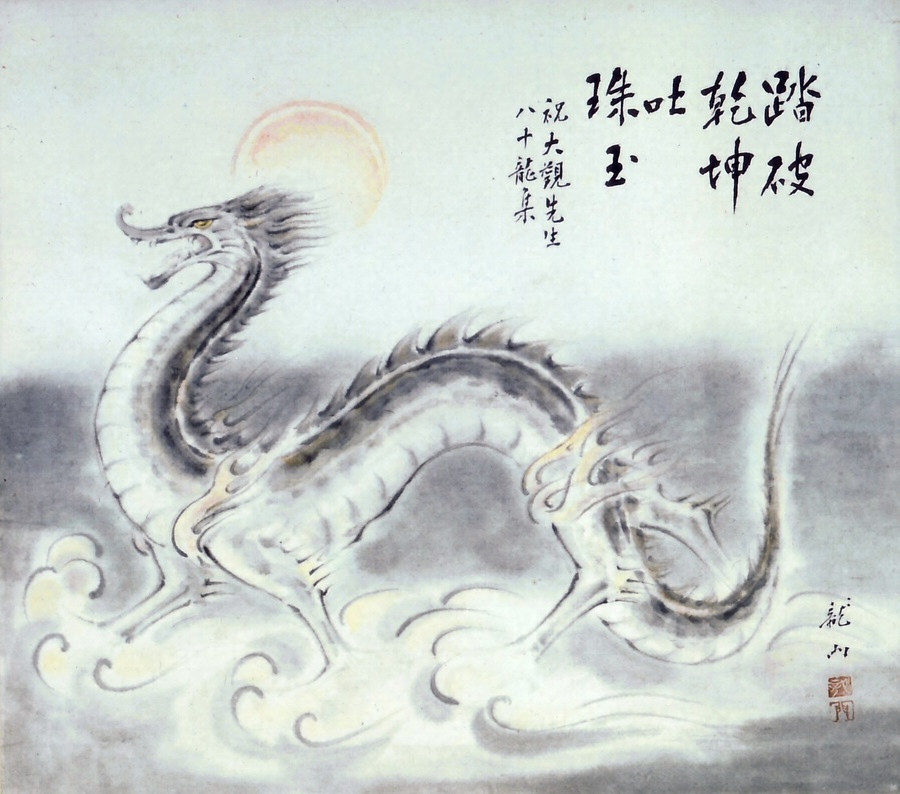 踏破
乾坤
吐
珠玉
祝大觀先生
八十龍集
龍山